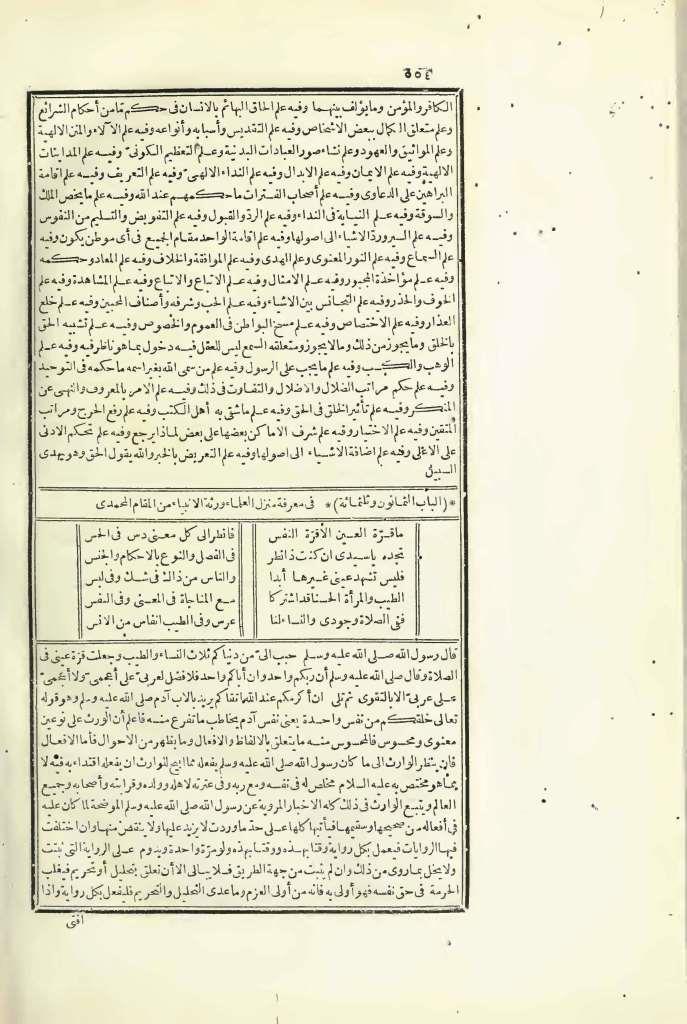 ٣٥٤
الكافر والمؤمن وما يؤلف بينهما وفيه علم الحاق البهائم بالانسان فى حكم ما من أحكام الشرائع
وعلم متعلق الكمال ببعض الاشخاص وفيه علم التقديس وأسبابه وأنواعه وفيه علم الآلاء والمنن الالهية
وعلم المواثيق والعهود وعلم نشاء صور العبادات البدنية وعلم التعظيم الكونى وفيه علم المداينات
الالهية وفيه علم الايمان وفيه علم الابدال وفيه علم النداء الالهى وفيه علم التعريف وفيه علم اقامة
البراهين على الدعاوى وفيه علم أصحاب الفترات ما حكمهم عند الله وفيه علم ما يخص الملك
والسوقة وفيه علم النيابة فى النداء وفيه علم الردّ والقبول وفيه علم التفويض والتسليم من النفوس
وفيه علم السير وردّ الاشياء الى اصولها وفيه علم اقامة الواحد مقام الجميع فى أى موطن يكون وفيه
علم السماع وفيه علم النور المعنوى وعلم الهدى وفيه علم الموافقة والخلاف وفيه علم المعاد وحكمه
وفيه علم مؤاخذة المجبور وفيه علم الامثال وفيه علم الاتباع والاتباع وفيه علم المشاهدة وفيه علم
الخوف والحذر وفيه علم التجانس بين الاشياء وفيه علم الحب وشرفه وأصناف المحبين وفيه علم خلع
العذار وفيه علم الاختصاص وفيه علم مسخ البواطن فى العموم والخصوص وفيه علم تشبيه الحق
بالخلق وما يجوز من ذلك وما لا يجوز ومتعلقه السمع ليس للعقل فيه دخول بما هو ناظر فيه وفيه علم
الوهب والكسب وفيه علم ما يجب على الرسول وفيه علم من سمى الله بغير اسمه ما حكمه فى التوحيد
وفيه علم حكم مراتب الضلال والاضلال والتفاوت فى ذلك وفيه علم الامر بالمعروف والنهى عن
المنكر وفيه علم تأثير الخلق فى الحق وفيه علم ما شقى به أهل الكتب وفيه علم رفع الحرج ومراتب
المتقين وفيه علم الاختيار وفيه علم شرف الاماكن بعضها على بعض لماذا يرجع وفيه علم تحكم الادنى
على الاعلى وفيه علم اضافة الاشياء الى اصولها وفيه علم التعريض بالخير والله يقول الحق وهو يهدى
السبيل
* (الباب الثمانون وثلثمائة) * فى معرفة منزل العلماء ورثة الانبياء من المقام المحمدى
ما قرّة العين الاقرّة النفس فانظر الى كل معنى دس فى الحس
تجده يا سيدى ان كنت ذا نظر فى الفصل والنوع بالاحكام والجنس
فليس تشهد عينى غيرها أبدا والناس من ذاك فى شك وفى لبس
الطيب والمرأة الحسناء قد اشتركا مع المناجاة فى المعنى وفى النفس
ففى الصلاة وجودى والنساء لنا عرس وفى الطيب انفاس من الانس
قال رسول الله صلى الله عليه وسلم حبب الىّ من دنياكم ثلاث النساء والطيب وجعلت قرّة عينى فى
الصلاة وقال صلى الله عليه وسلم أن ربكم واحد وان أباكم واحد فلا فضل لعربى على أعجمى ولا أعجمى
على عربى الا بالتقوى ثم تلى ان أكرمكم عند الله اتقاكم يريد بالاب آدم صلى الله عليه وسلم وهو قوله
تعالى خلقكم من نفس واحدة يعنى نفس آدم يخاطب ما تفرع منه فاعلم أن الورث على نوعين
معنوى ومحسوس فالمحسوس منه ما يتعلق بالالفاظ والافعال وما يظهر من الاحوال فأما الافعال
فان ينظر الوارث الى ما كان رسول الله صلى الله عليه وسلم يفعله مما ابيح للوارث ان يفعله اقتداء به فيه لا
بما هو مختص به عليه السلام مخلص له فى نفسه ومع ربه وفى عشرته لاهله وولده وقرابته وأصحابه وجميع
العالم ويتبع الوارث فى ذلك كله الاخبار المروية عن رسول الله صلى الله عليه وسلم الموضحة لما كان عليه
فى أفعاله من صحيحها وسقيمها فيأتيها كلها على حدّ ما وردت لا يزيد عليها ولا ينقص منها وان اختلفت
فيها الروايات فيعمل بكل رواية وقتا بهذه ووقتا بهذه ولو مرّة واحدة ويدوم على الرواية التى ثبتت
ولا يخل بما روى من ذلك وان لم يثبت من جهة الطريق فلا يبالى الا أن تعلق بتحليل أو تحريم فيغلب
الحرمة فى حق نفسه فهو أولى به فانه من أولى العزم وما عدى التحليل والتحريم فليفعل بكل رواية واذا
افتى